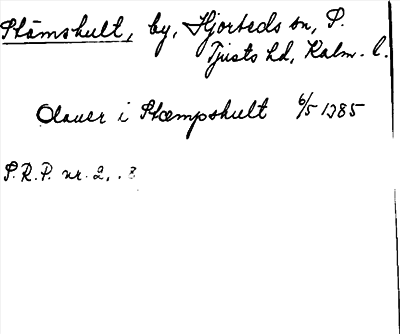 Stämshult, by, Hjorteds sn, S.
Tjusts hd, Kalm. l.
Olauer i Stæmpshult 6/5 1385
S.R.P. nr. 2,